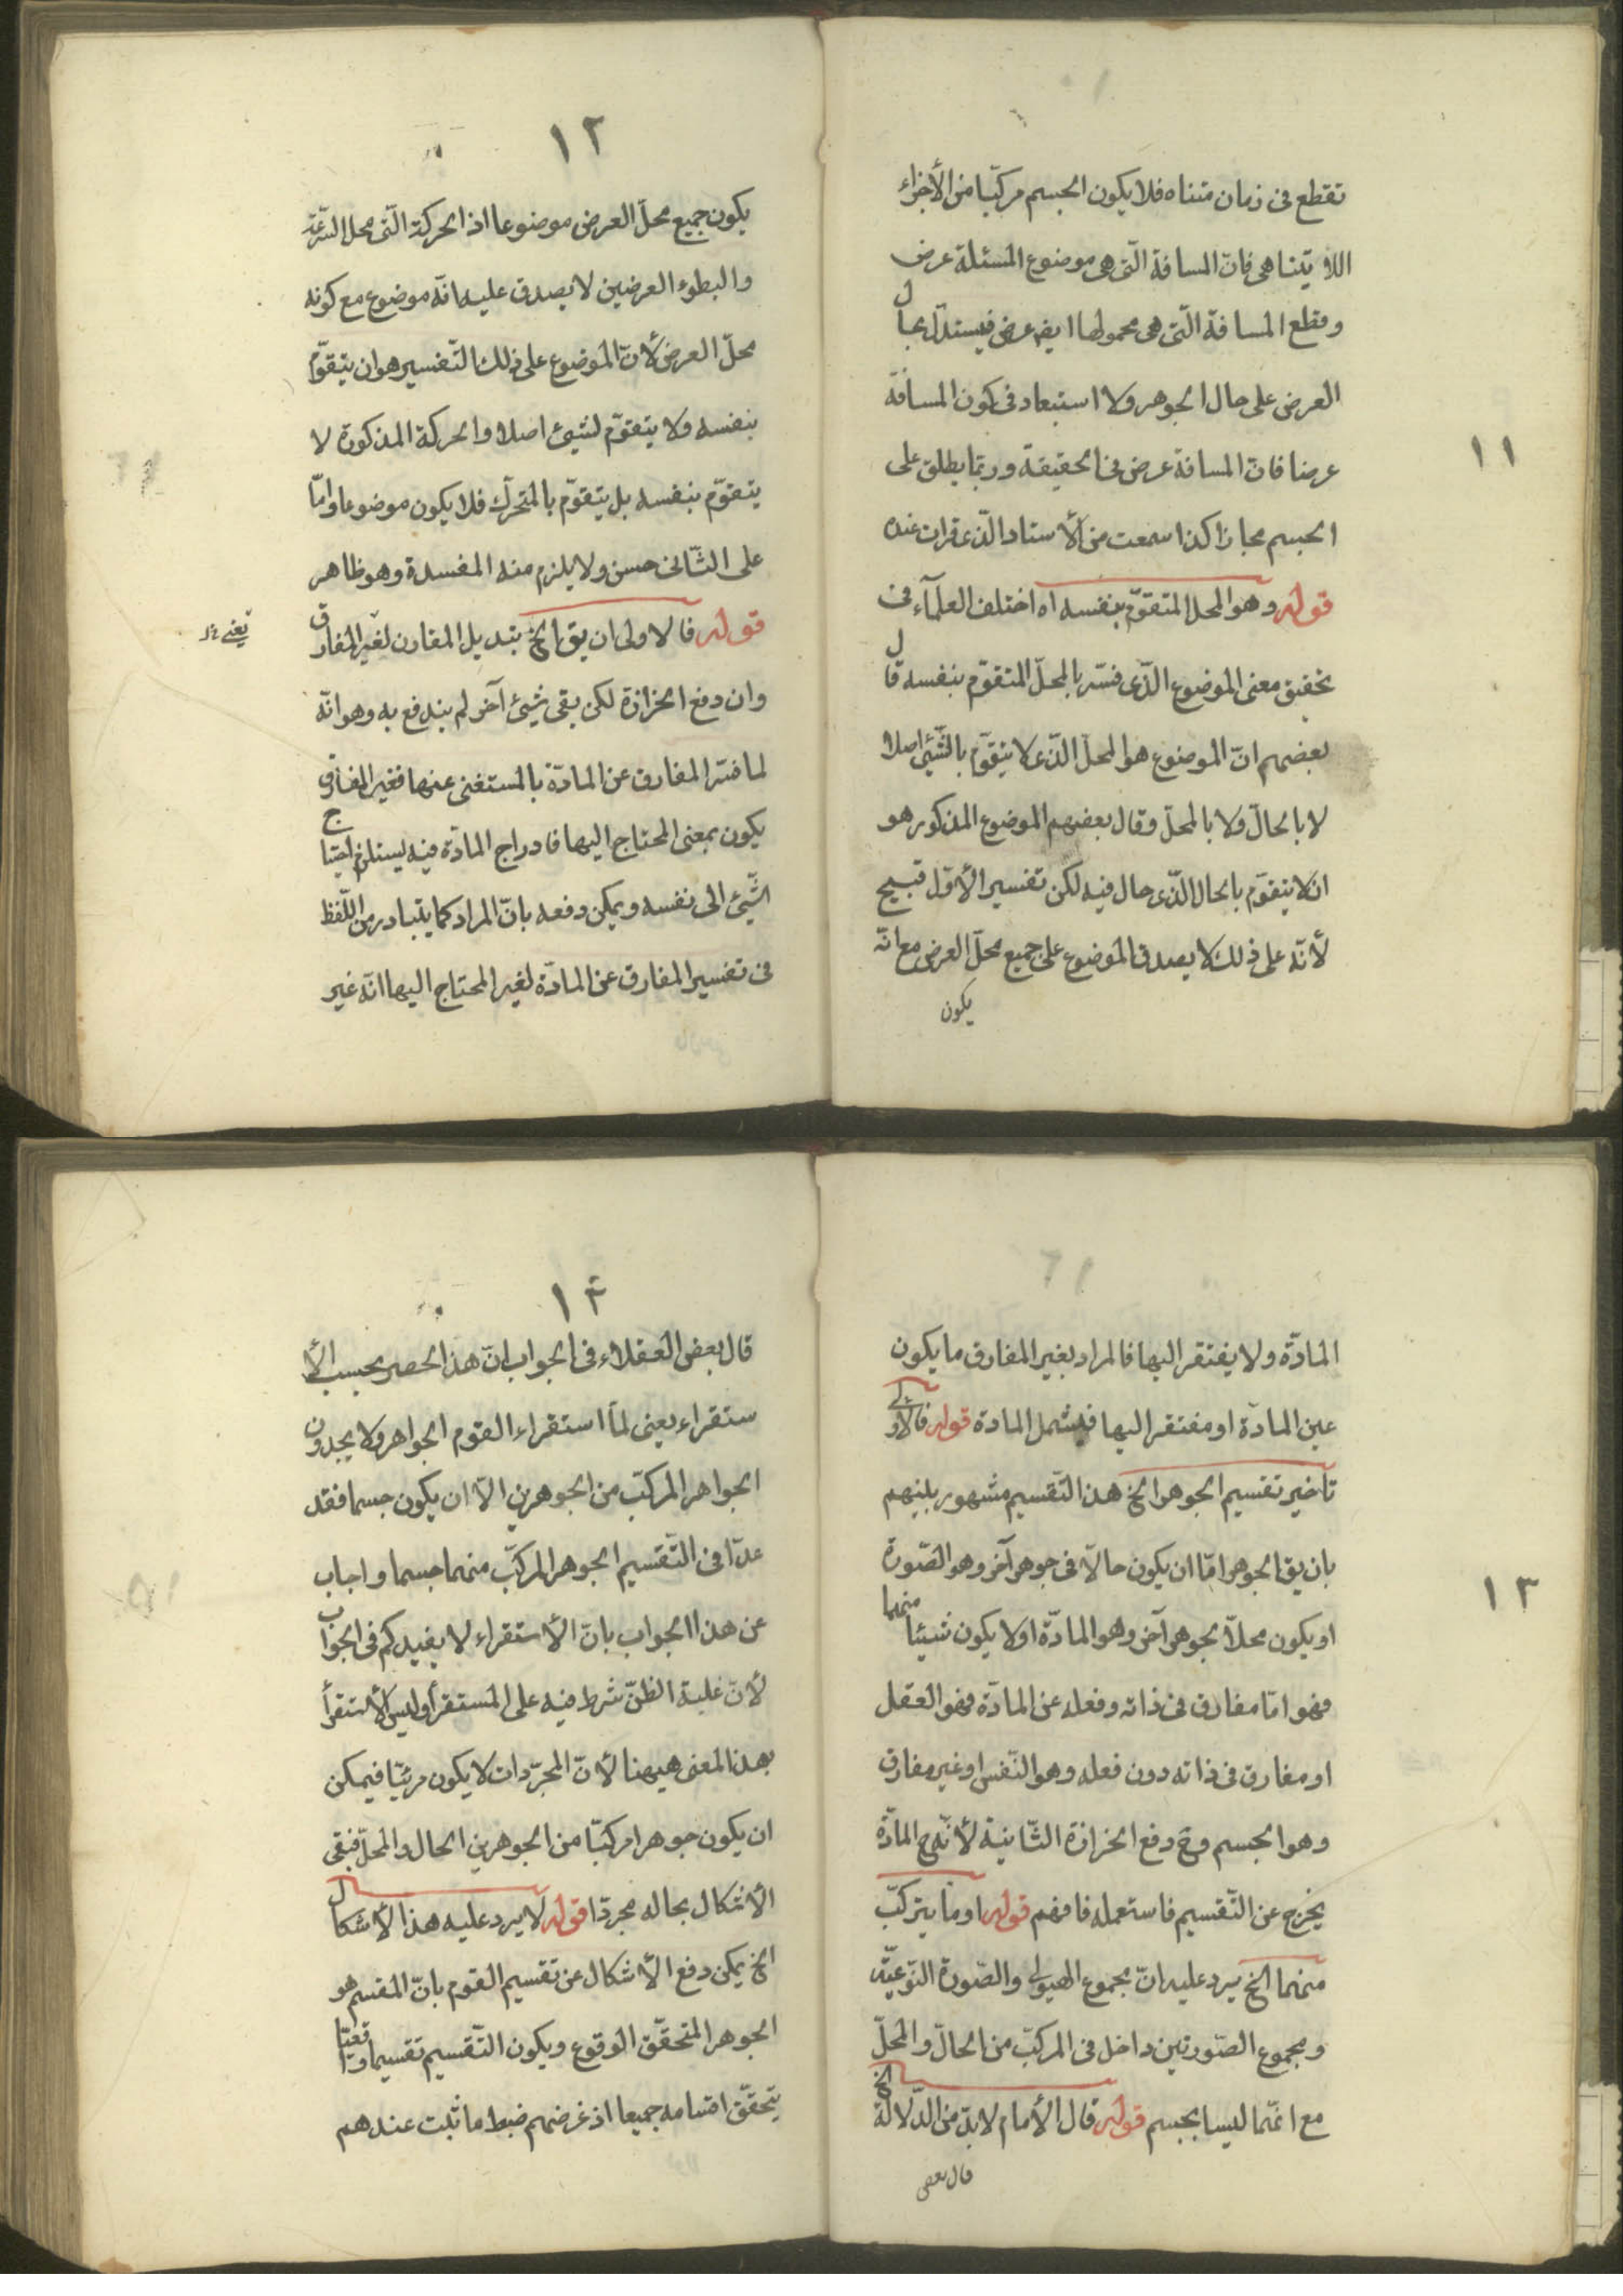 ١١
تقطع فى زمان متناه فلا يكون الجسم مركبّا من الأجزاء
اللا يتناهى فانّ المسافة الّتى هى موضوع المسئلة عرض
وقطع المسافة الّتى هى محمولها ايضٖ عرض فيستدلّ بحال
العرض على حال الجوهر ولا استبعاد فى كون المسافة
عرضا فانّ المسافة عرض فى الحقيقة وربّما يطلق على
الجسم مجازا كذا سمعت من الأستاد الّذى قرات عنده
قوله وهو المحل المتقوّم بنفسه اه اختلف العلمآء فى
تحقيق معنى الموضوع الّذى فسّر بالمحلّ المتقوّم بنفسه قال
بعضهم انّ الموضوع هو المحلّ الّذى لا يتقوّم بالشّيئ اصلا
لا بالحالّ ولا بالمحلّ وقال بعضهم الموضوع المذكور هو
ان لا يتقوّم بالحال الّذى حال فيه لكن تفسير الأوّل قبيح
لأنّه على ذلك لا يصدق الموضوع على جميع محلّ العرض مع انّه
يكون
١٢
يكون جميع محلّ العرض موضوعا اذ الحركة الّتى محل السّرعة
والبطوء العرضين لا يصدق عليه انّه موضوع مع كونه
محلّ العرض لأنّ الموضوع على ذلك التّفسير هو ان يتقوّم
بنفسه ولا يتقوّم لشيئ اصلا والحركة المذكورة لا
يتقوّم بنفسه بل يتقوّم بالمتحرّك فلا يكون موضوعا وامّا
على الثّانى حسن ولا يلزم منه المفسدة وهو ظاهر
قوله فالاولى ان يقٖ الخ بتبديل المقارن لغير المفارق
يعنى
وان دفع الحزازة لكن بقى شيئ آخر لم يندفع به وهو انّه
لما فسّر المفارق عن المادّة بالمستغنى عنها فغير المفارق
يكون بمعنى المحتاج اليها فادراج المادّة فيه يستلزم احتياج
الشّيئ الى نفسه ويمكن دفعه بانّ المراد كما يتبادر من اللّفظ
فى تفسير المفارق عن المادّة لغير المحتاج اليها انّه غير
١٣
المادّة ولا يفتقر اليها فالمراد بغير المفارق ما يكون
عين المادّة او مفتقر اليها فيشمل المادة قوله فالاولى
تأخير تقسيم الجوهر الخ هذا التّقسيم مشهور بينهم
بان يقٖ الجوهر امّا ان يكون حالاّ فى جوهر آخر وهو الصّورة
او يكون محلاّ بجوهر آخر وهو المادّة او لا يكون شيئا منهما
فهو امّا مفارق فى ذاته وفعله عن المادّة فهو العقل
او مفارق فى ذاته دون فعله وهو النّفس او غير مفارق
وهو الجسم وحٖ دفع الحزازة الثّانية لأنّه حٖ المادّة
يخرج عن التّقسيم فاستعمله فافهم قوله او ما يتركّب
منهما الخ يرد عليه انّ مجموع الهيولى والصّورة النّوعيّة
ومجموع الصّورتين داخل فى المركبّ من الحالّ والمحلّ
مع انّهما ليسا بجسم قوله قال الأمام لابدّ من الدّلالة الخ
قال بعض
١٤
قال بعض العقلاء فى الجواب انّ هذا الحصر بحسب الأ
ستقراء يعنى لمّا استقراء القوم الجواهر ولا يجدون
الجواهر المركبّ من الجوهرين الاّ ان يكون جسما فقد
عدّا فى التّقسيم الجوهر المركبّ منهما جسما واجاب
عن هذا الجواب بانّ الأستقراء لا يفيدكم فى الجواب
لأنّ غلبة الظّنّ شرط فيه على المستقرأ وليس الأستقرأ
بهذا المعنى هيهنا لأنّ المجرّدات لا يكون مرئيّا فيمكن
ان يكون جوهرا مركبّا من الجوهرين الحال والمحلّ فبقى
الأشكال بحاله مجردّا قوله لا يرد عليه هذا الأشكال
الخ يمكن دفع الأشكال عن تقسيم القوم بانّ المقسم هو
الجوهر المتحقّق الوقوع ويكون التّقسيم تقسيما واقعيّا
يتحقّق اقسامه جميعا اذ غرضهم ضبط ما ثبت عندهم